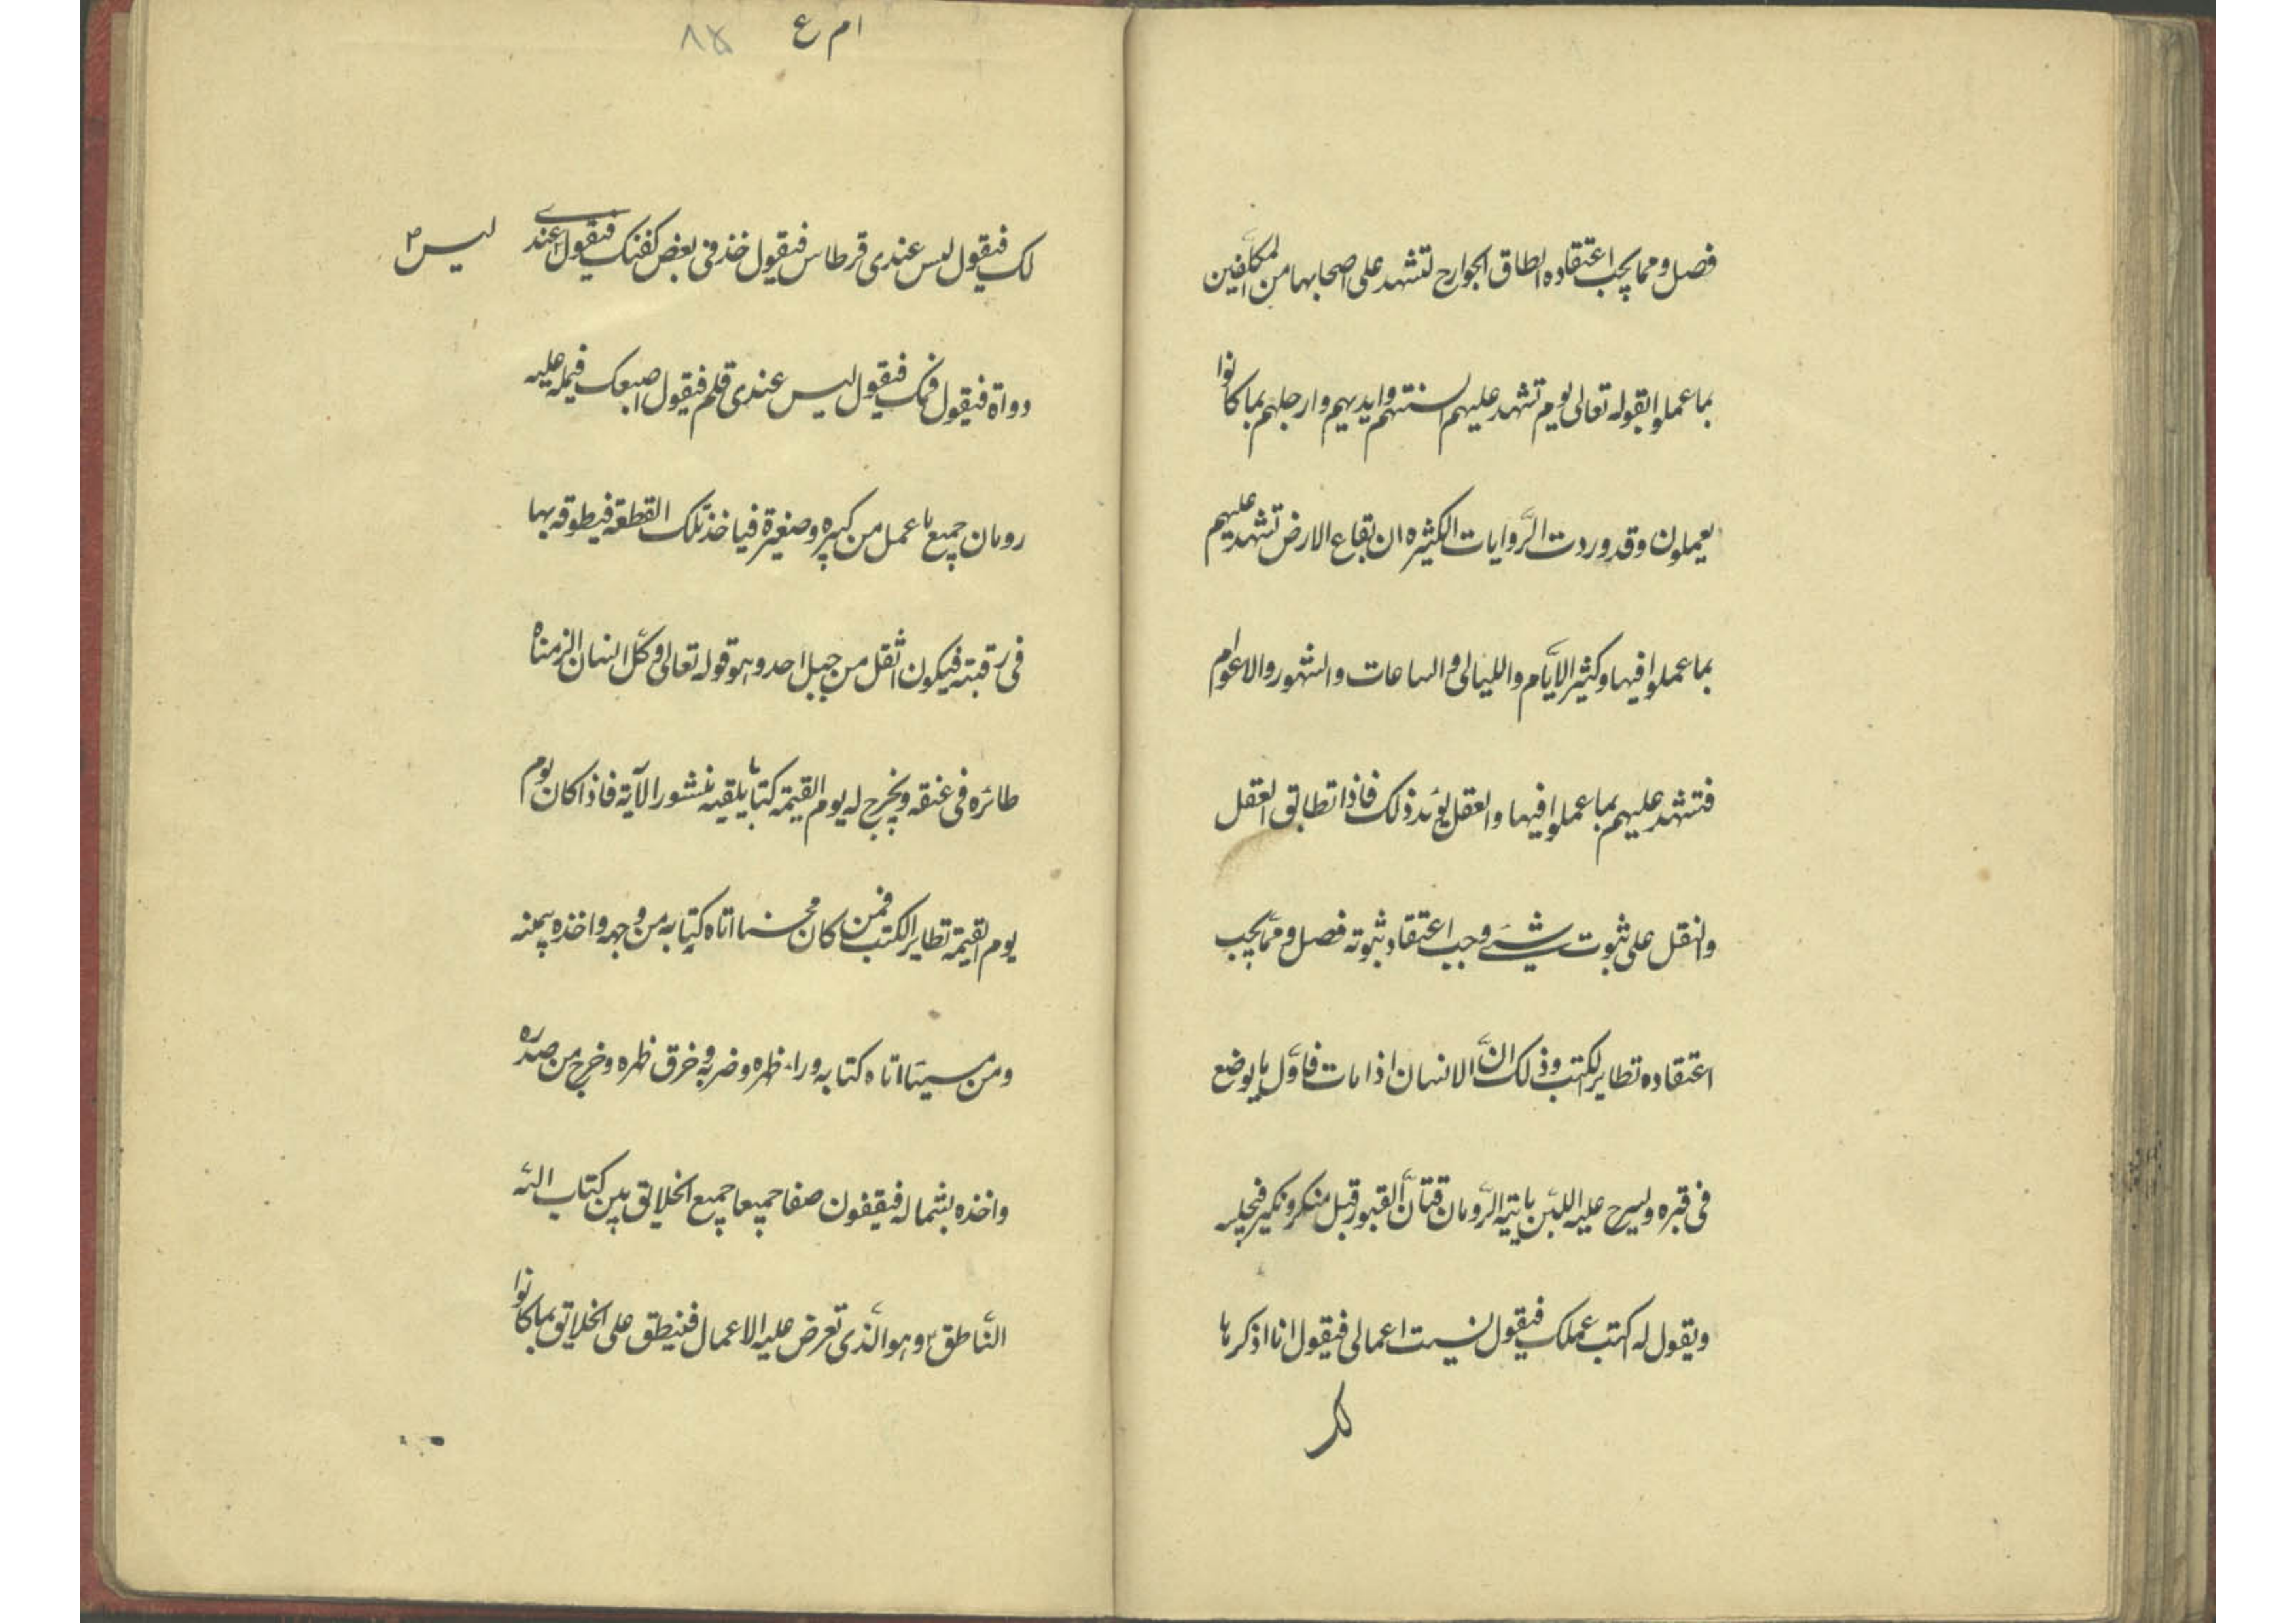 فصل ومما يجب اعتقاده انطاق الجوارح لتشهد على اصحابها من المكلّفين
بما عملوا لقوله تعالى يوم تشهد عليهم السنتهم وايديهم وارجلهم بما كانوا
يعملون وقد وردت الرّوايات الكثيره ان بقاع الارض تشهد عليهم
بما عملوا فيها وكثير الايّام والليالى والساعات والشهور والاعوام
فتشهد عليهم بما عملوا فيها والعقل يؤيد ذلك فاذا تطابق العقل
والنقل على ثبوت شىء وجب اعتقاد ثبوته فصل وممّا يجب
اعتقاده تطاير الكتب وذلك انّ الانسان اذا مات فاوّل ما يوضع
فى قبره وليسرح عليه اللبن ياتيه الرّومان فتّان القبور قبل منكر ونكير فيجلسه
ويقول له اكتب عملك فيقول نسيت اعمالى فيقول انا اذكرها
لك
ام ع
٨٧
لك فيقول ليس عندى قرطاس فيقول خذ فى بعض كفنك فيقول عندى
ليس م
دواة فيقول فمك فيقول ليس عندى قلم فيقول اصبعك فيمله عليه
رومان جميع ما عمل من كبيره وصغيرة فياخذ تلك القطعة فيطوقه بها
فى رقبته فيكون اثقل من جبل احد وهو قوله تعالى وكلّ انسان الزمناه
طائره فى عنقه ونخرج له يوم القيمة كتابا يلقيه منشورا الآية فاذا كان يوم
يوم القيمة تطاير الكتب فمن كان محسنا اتاه كتابه من وجهه واخذه بيمينه
ومن مسيئا اتاه كتابه وراء ظهره وضربه وخرق ظهره وخرج من صدره
واخذه بشماله فيقفون صفا جميعا جميع الخلايق بين كتاب الله
النّاطق وهو الّذى تعرض عليه الاعمال فينطق على الخلايق بما كانوا